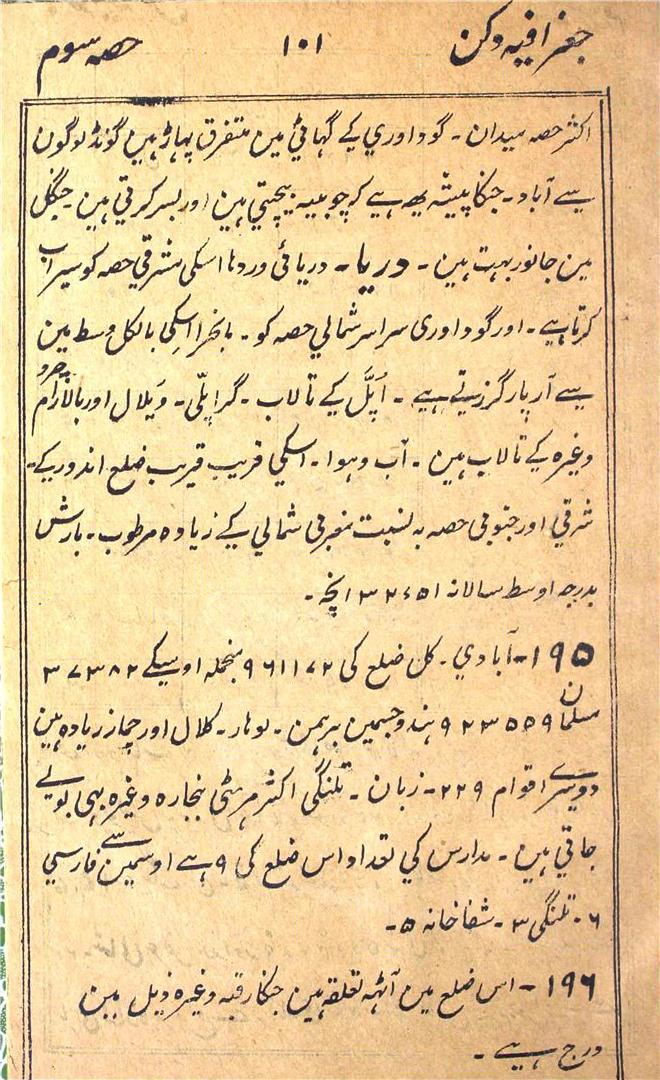 جغرافیه دکن ۱۰۱ حصه سوم
اکثر حصه میدان - گوداوري کے گہاٹي مین متفرق پہاڑ ہین گونڈ لوگون
سے آباد - جنکا پیشه یهه ہے که چوبینه بیچتي ہین اور بسر کرتي ہین جنگل
مین جانور بہت ہین - دریا - دریائی وردہا اسکی مشرقي حصه کو سیراب
کرتا ہے - اور گوداوری سراسر شمالي حصه کو - مانجرا اسکی بالکل وسط مین
سے آر پار گزرتے ہے - اُپلَّ کے تالاب - گراپلّی - ویلال اور بالارام
وغیره کے تالاب ہین - آب و ہوا - اسکي قریب قریب ضلع اندور کے -
شرقي اور جنوبی حصه به نسبت مغربی شمالي کے زیاده مرطوب - بارش
بدرجه اوسط سالانه ۳۲٫۵۱ انچه -
۱۹۵ - آبادي - کل ضلع کی ۹۶۱۱۷۲ منجمله اوسیکے ۳۷۳۸۲
مسلمان ۹۲۳۵۵۹ ہندو جسمین برہمن - لوہار - کلال اور چمار زیاده ہین
دوسرے اقوام ۲۲۹ - زبان - تلنگی اکثر مرہٹی بنجاره وغیره بہی بولے
جاتي ہین - مدارس کي تعداد اس ضلع کی ۹ ہے اوسمین سے فارسي
۶ - تلنگی ۳ - شفاخانه ۵ -
۱۹۶ - اس ضلع مین آٹہه تعلقه ہین جنکا رقبه وغیره ذیل مین
درج ہے -